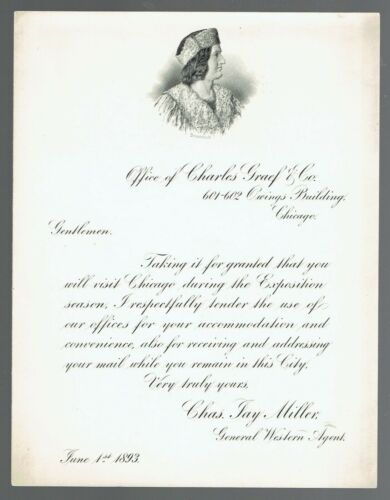 Office of Charles Graef & Co.
601-602 Owings Building,
Chicago.
Gentlemen.
Taking it for granted that you
will visit Chicago during the Exposition
season, I respectfully tender the use of
our offices for your accommodation and
convenience, also for receiving and addressing
your mail while you remain in this City.
Very truly yours,
Chas. Jay Miller,
General Western Agent.
June 1st 1893.